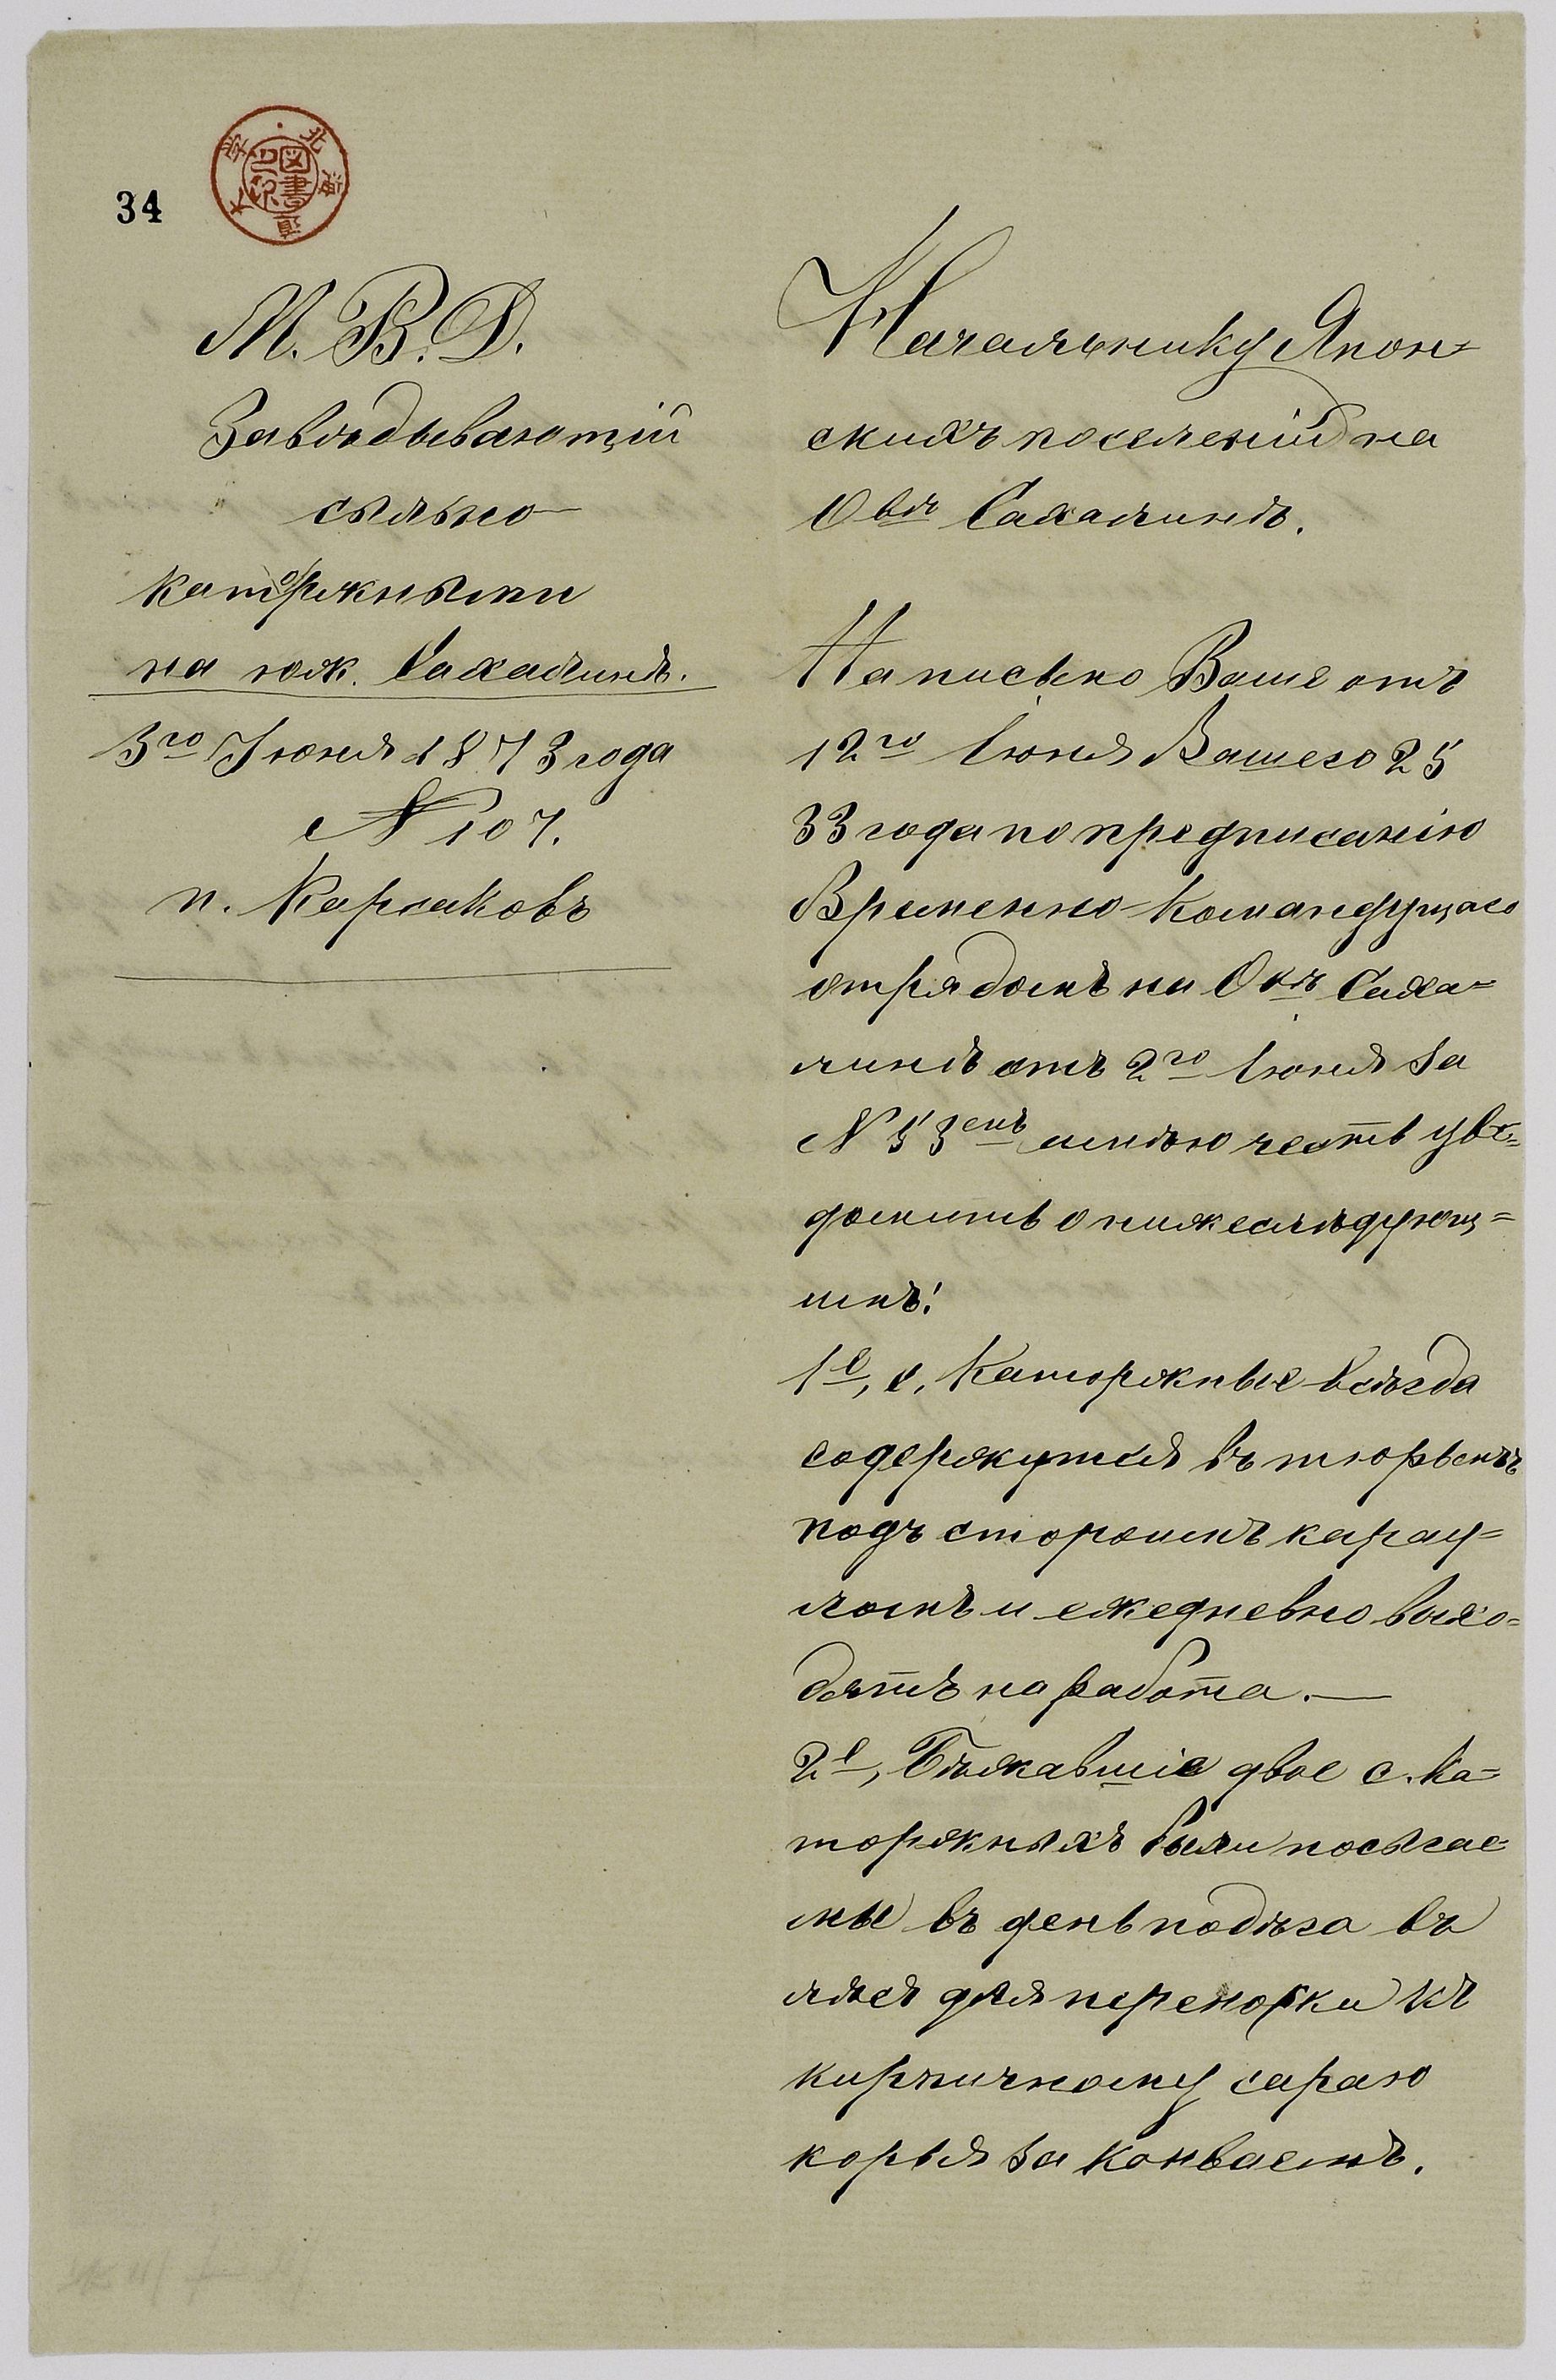 34
北海道大学
図書之印
М. В. Д.
Завѣдывающій
сыльно
каторжными
на юж. Сахалинѣ.
3го Іюня 1873 года
№ 107.
п. Карсаковъ
Начальнику Япон=
скихъ поселеній на
Овѣ Сахалинѣ.
На письмо Ваше отъ
12го Іюня Вашего 25
33 года по предписанію
Временно-Командущаго
отрядомъ на Сaха=
линѣ отъ 2го Іюня за
№ 53емъ имѣю честь увѣ=
домить о нижеслѣдующ=
имъ:
1е, с. Каторжные всѣгда
содержутся въ тюрьмѣ
подъ строгимъ карау=
ломъ и ежедневно выхо=
дятъ на работа.—
2е, Бѣжавшіе двое с. Ка=
торжныхъ были посылае=
мы въ день побѣга въ
лѣсъ для переноски къ
кирпичному сараю
корья за конваемъ.